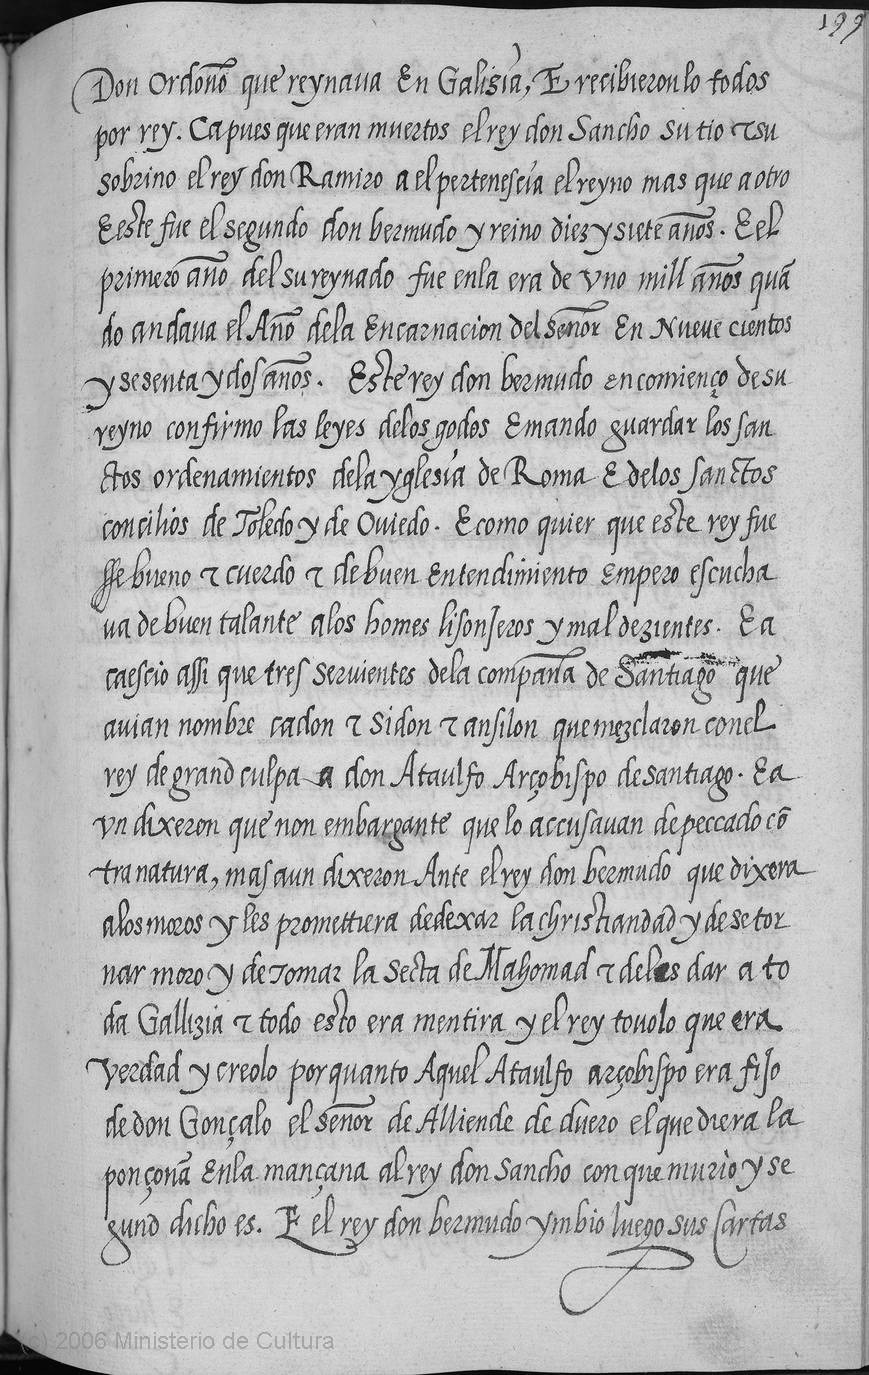 199
Don Ordoño que reynaua En Galisia, E recibieronlo todos
por rey. Ca pues que eran muertos el rey don Sancho su tio τ su
sobrino el rey don Ramiro a el pertenescia el reyno mas que a otro
E este fue el segundo don bermudo y reino diez y siete años. E el
primero año del su reynado fue en la era de vno mill años quã
do andaua el Año dela Encarnacion del señor En Nueue cientos
y sesenta y dos años. Este rey don bermudo en comienço de su
reyno confirmo las leyes delos godos E mando guardar los san
ctos ordenamientos dela yglesia de Roma E delos sanctos
concilios de Toledo y de Ouiedo. E como quier que este rey fue
sse bueno τ cuerdo τ de buen Entendimiento Empero escucha
ua de buen talante alos homes lisonjeros y mal dezientes. E a
caescio assi que tres seruientes dela compaña de Santiago que
auian nombre cadon τ Sidon τ ansilon que mezclaron con el
rey de grand culpa a don Ataulfo Arçobispo de santiago. E a
vn dixeron que non embargante que lo accusauan de peccado cõ
tra natura, mas aun dixeron Ante el rey don bermudo que dixera
alos moros y les promettiera de dexar la christiandad y de se tor
nar moro y de tomar la secta de Mahomad τ deles dar a to
da Gallizia τ todo esto era mentira y el rey touolo que era
verdad y creolo por quanto Aquel Ataulfo arçobispo era fijo
de don Gonçalo el señor de Alliende de duero el que diera la
ponçoña En la mançana al rey don sancho con que murio y se
gund dicho es. E el rey don bermudo ymbio luego sus Cartas
(c) 2006 Ministerio de Cultura